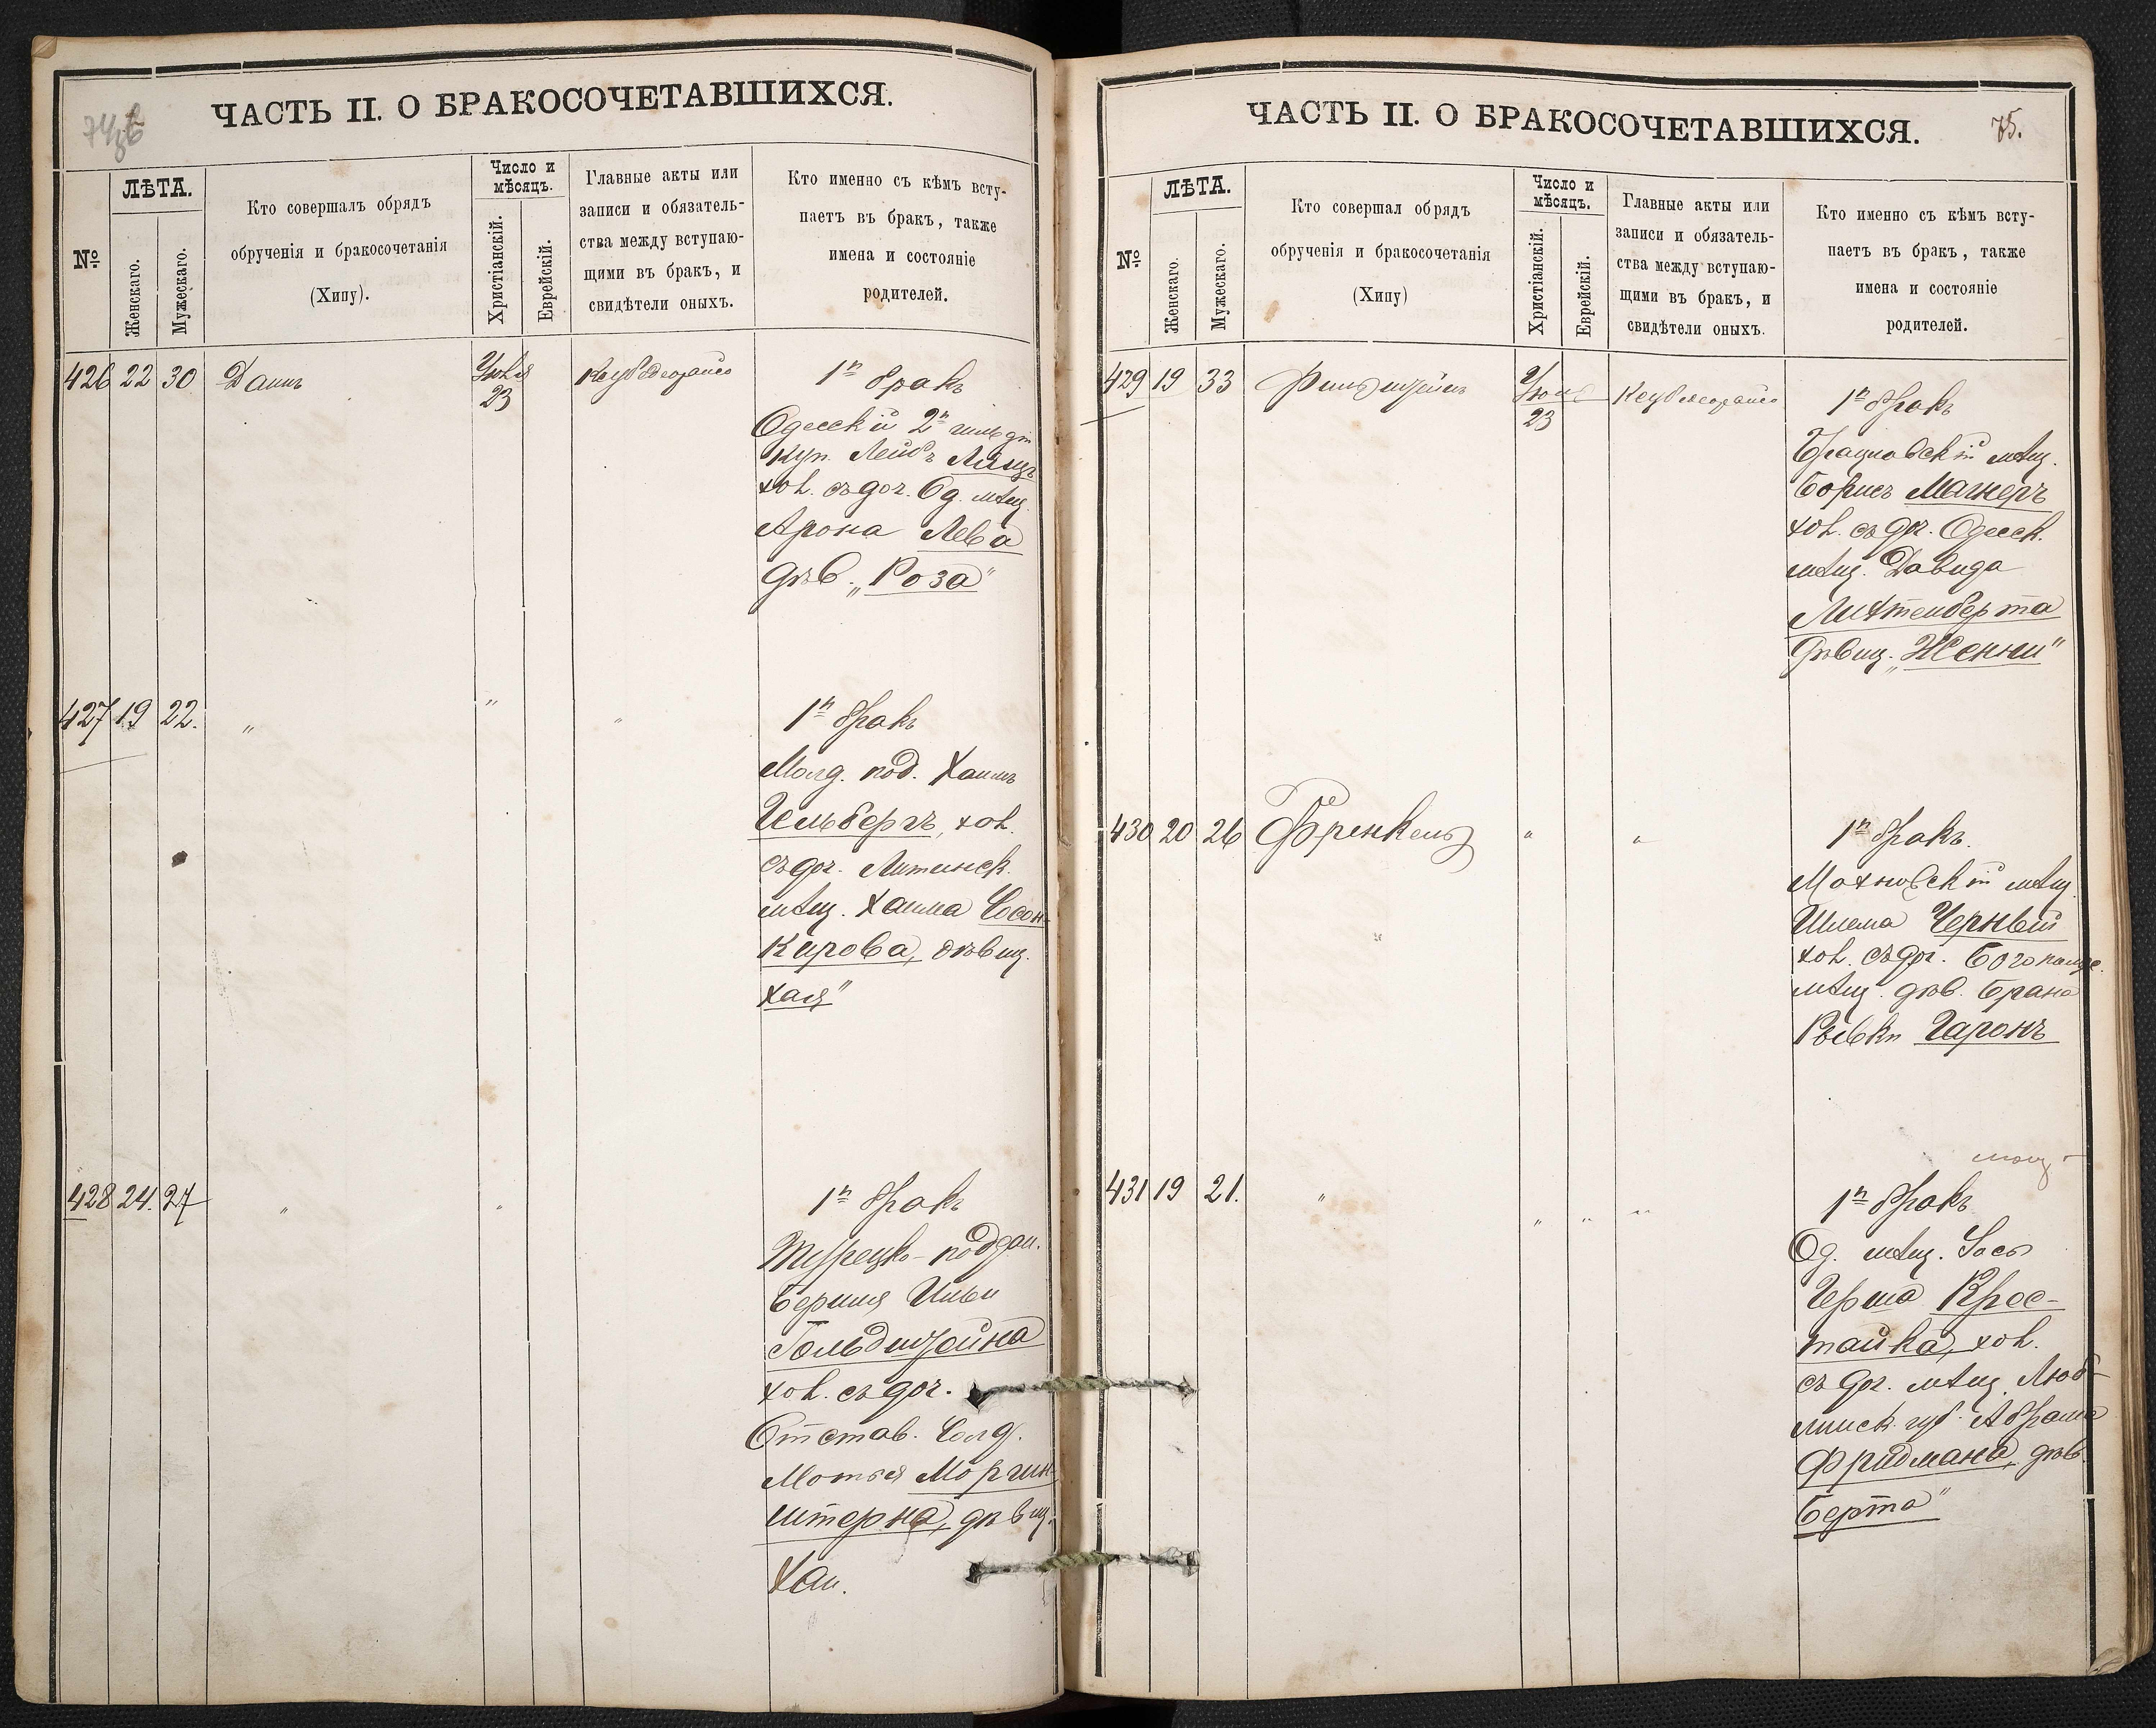 ЧАСТЬ II. О БРАКОСОЧЕТАВШИХСЯ.
№
ЛѢТА.
Женскаго.
Мужескаго.
Кто совершалъ обрядъ
обрученія и бракосочетанія
(Хипу).
Число и
мѣсяцъ.
Христіанскій.
Еврейскій.
Главные акты или
записи и обязатель-
ства между вступаю-
щими въ бракъ, и
свидѣтели оныхъ.
Кто именно съ кѣмъ всту-
паетъ въ бракъ, также
имена и состояніе
родителей.
426 22 30
23
1й бракъ
Одесскій 2й гильд
куп. Лейбъ
хол. съ доч. Од. мѣщ.
Арона Лева
дѣв. „Роза"
427 19 22. " " "
1й бракъ
Молд. под. Хаимъ
Гельбергъ, хол.
съ доч. Литинск.
мѣщ. Хаима Сосон-
кирова, дѣвиц.
Хая"
428 24. 27 " "
1й бракъ
Турецко-поддан.
Бериша
Гольдштейна
хол. съ доч.
Отстав. Солд.
Мотья Моргин-
штерна, дѣвиц.
ЧАСТЬ II. О БРАКОСОЧЕТАВШИХСЯ.
75.
№
ЛѢТА.
Женскаго.
Мужескаго.
Кто совершал обрядъ
обрученія и бракосочетанія
(Хипу)
Число и
мѣсяцъ.
Христіанскій.
Еврейскій.
Главные акты или
записи и обязатель-
ства между вступаю-
щими въ бракъ, и
свидѣтели оныхъ.
Кто именно съ кѣмъ всту-
паетъ въ бракъ, также
имена и состояніе
родителей.
429 19 33
23
1й бракъ
Брацловскій мѣщ.
Борисъ Магнеръ
хол. съ доч. Одесск.
мѣщ. Давида
Лихтенберга
дѣвиц. „Женни"
430 20 26 Френкель " "
1й бракъ.
Махновскій мѣщ.
Шлема Черный
хол. съ доч.
мѣщ. дѣв. Брана
Рывки Гаронъ
431 19 21. " " " "
1й бракъ
Од. мѣщ. Іось
Герша Крос-
тайка, хол.
съ доч. мѣщ. Люб-
линск. губ. Абрама
Фридмана, дѣв.
Берта"